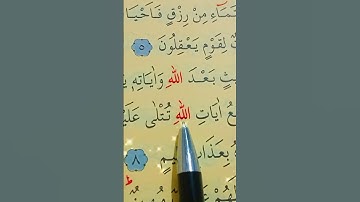 ـمَاءِ مِنْ رِزْقٍ فَاَحْيَا
ـتٌ لِقَوْمٍ يَعْقِلُونَ ٥
ـيثٍ بَعْدَ اللّٰهِ وَاٰيَاتِهٖ يُـ
ـعُ اٰيَاتِ اللّٰهِ تُتْلٰى عَلَيْـ
بِعَذَابٍ ـيمٍ ٨
ـهُمْ